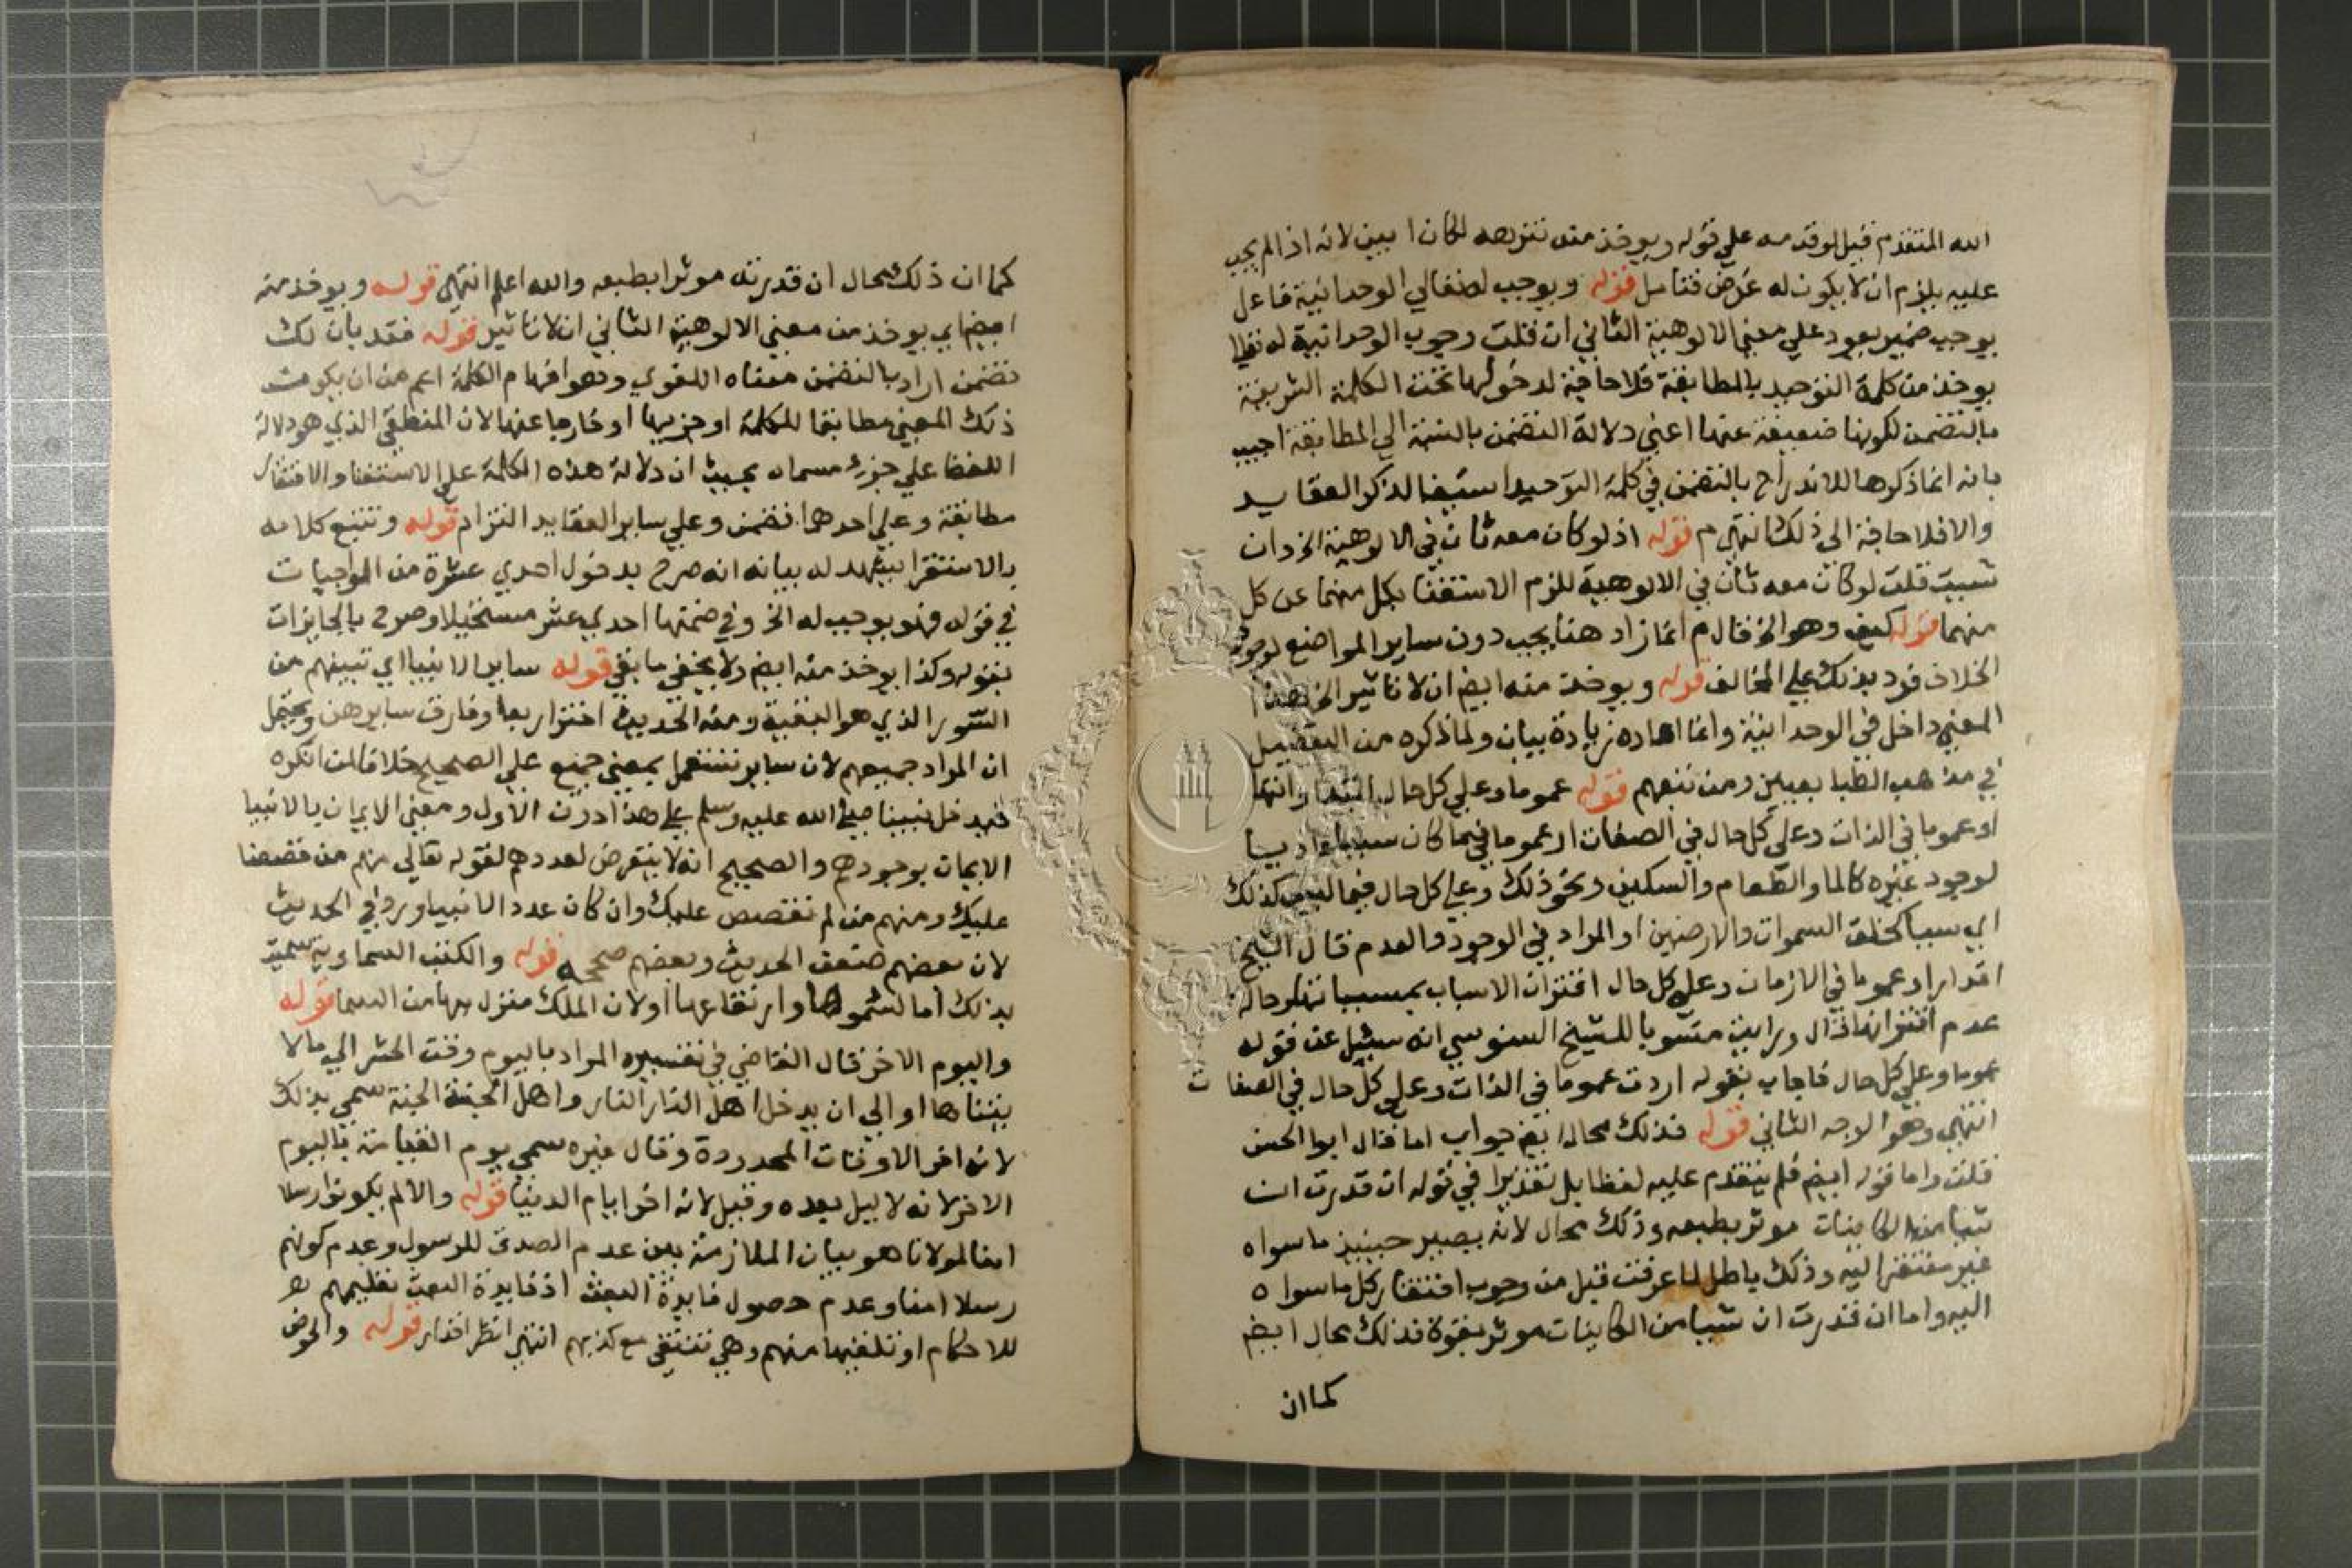 الله المتقدم قبل لو قدمه علي قوله ويوخذ منه تنزيهه لكان ابين لانه اذا لم يجب
عليه يلزم ان لا يكون له غرض فتامل قوله ويوجب له تعالي الوحدانية فاعل
يوجب ضمير يعود علي معني الالوهية الثاني ان قلت وجوب الوحدانية له تعالي
يوخذ من كلمة التوحيد بالمطابقة فلا حاجة لدخولها تحت الكلمة الشريفة
بالتضمن لكونها ضعيفة عنها اعني دلالة التضمن بالنسبة الي المطابقة اجيب
بانه انما ذكرها للاندراج بالتضمن في كلمة التوحيد استيفا لذكر العقايد
والا فلا حاجة الي ذلك انتهي م قوله اذ لو كان معه ثان في الالوهية الخ وان
شيت قلت لو كان معه ثان في الالوهية للزم الاستغنا بكل منهما عن كل
منهما قوله كيف وهو الخ قال م انما زاد هنا يجب دون ساير المواضع لوجود
الخلاف فرد بذلك علي المخالف قوله ويوخذ منه ايض ان لا تاثير الخ هذا
المعني داخل في الوحدانية وانما اعاده زيادة بيان ولما ذكره من التفصيل
في مذهب الطبايعيين ومن تبعهم قوله عموما وعلي كل حال
او عموما في الذات وعلي كل حال في الصفات او عموما فيما كان سببا عاديا
لوجود غيره كالما والطعام والسكين ونحو ذلك وعلي كل حال فيما ليس كذلك
اي سببا كخلق السموات والارضين او المراد في الوجود والعدم قال الشيخ
اقدار اد عموما في الازمان وعلي كل حال اقتران الاسباب بمسبباتها وحالة
عدم اقترانها قال ورايت منسوبا للشيخ السنوسي انه سيل عن قوله
عموما وعلي كل حال فاجاب بقوله اردت عموما في الذات وعلي كل حال في الصفات
انتهي وهو الوجه الثاني قوله فذلك محال ايض جواب اما قال ابو الحسن
قلت واما قوله ايض فلم يتقدم عليه لفظا بل تقديرا في قوله ان قدرت ان
شيا من الكاينات موثر بطبعه وذلك محال لانه يصير حينيذ ما سواه
غير مفتقر اليه وذلك باطل لما عرفت قبل من وجوب افتقار كل ما سواه
اليه واما ان قدرت ان شيا من الكاينات موثر بقوة فذلك محال ايض
كما ان
كما ان ذلك محال ان قدرته موثرا بطبعه والله اعلم انتهي قوله ويوخذ منه
ايض اي يوخذ من معني الالوهية الثاني ان لا تاثير قوله فقد بان لك
تضمن اراد بالتضمن معناه اللغوي وهو افهام الكلمة اعم من ان يكون
ذلك المعني مطابقا للكلمة او جزيها او خارجا عنها لان المنطقي الذي هو دلالة
اللفظ علي جزء مسماه بحيث ان دلالة هذه الكلمة علي الاستغنا والافتقار
مطابقة وعلي احدهما تضمن وعلي ساير العقايد التزام قوله وتتبع كلامه
بالاستقرا يشهد له بيانه انه صرح بدخول احدي عشرة من الواجبات
في قوله فهو يوجب له الخ وفي ضمنها احدي عشر مستحيلا وصرح بالجايزات
بقوله وكذا يوخذ منه ايض ولا يخفي ما بقي قوله ساير الانبيا اي بقيتهم من
السور الذي هو البقية ومنه الحديث اختر اربعا وفارق سايرهن ويحتمل
ان المراد جميعهم لان ساير تستعمل بمعني جميع علي الصحيح خلافا لمن انكره
فيدخل نبينا صلي الله عليه وسلم علي هذا دون الاول ومعني الايمان بالانبيا
الايمان بوجودهم والصحيح انه لا يتعرض لعددهم لقوله تعالي منهم من قصصنا
عليك ومنهم من لم نقصص عليك وان كان عدد الانبيا ورد في الحديث
لان بعضهم ضعف الحديث وبعضهم صححه قوله والكتب السماوية سميت
بذلك اما لسموها وارتفاعها او لان الملك منزل بها من السما قوله
واليوم الاخر قال القاضي في تفسيره المراد باليوم وقت الحشر الي ما لا
يتناها او الي ان يدخل اهل النار النار واهل الجنة الجنة سمي بذلك
لانه اخر الاوقات المحدودة وقال غيره سمي يوم القيامة باليوم
الاخر لانه لا ليل بعده وقيل لانه اخر ايام الدنيا قوله والا لم يكونوا رسلا
امنا لمولانا هو بيان الملازمة بين عدم الصدق للرسول وعدم كونهم
رسلا امنا وعدم حصول فايدة البعث اذ فايدة البعث تعليمهم
للاحكام او تلقيها منهم وهي تنتفي مع كذبهم انتهي انظر اقدار قوله والخوض